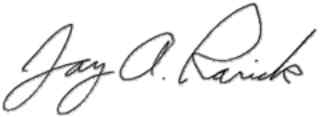 Jay A. Rarick